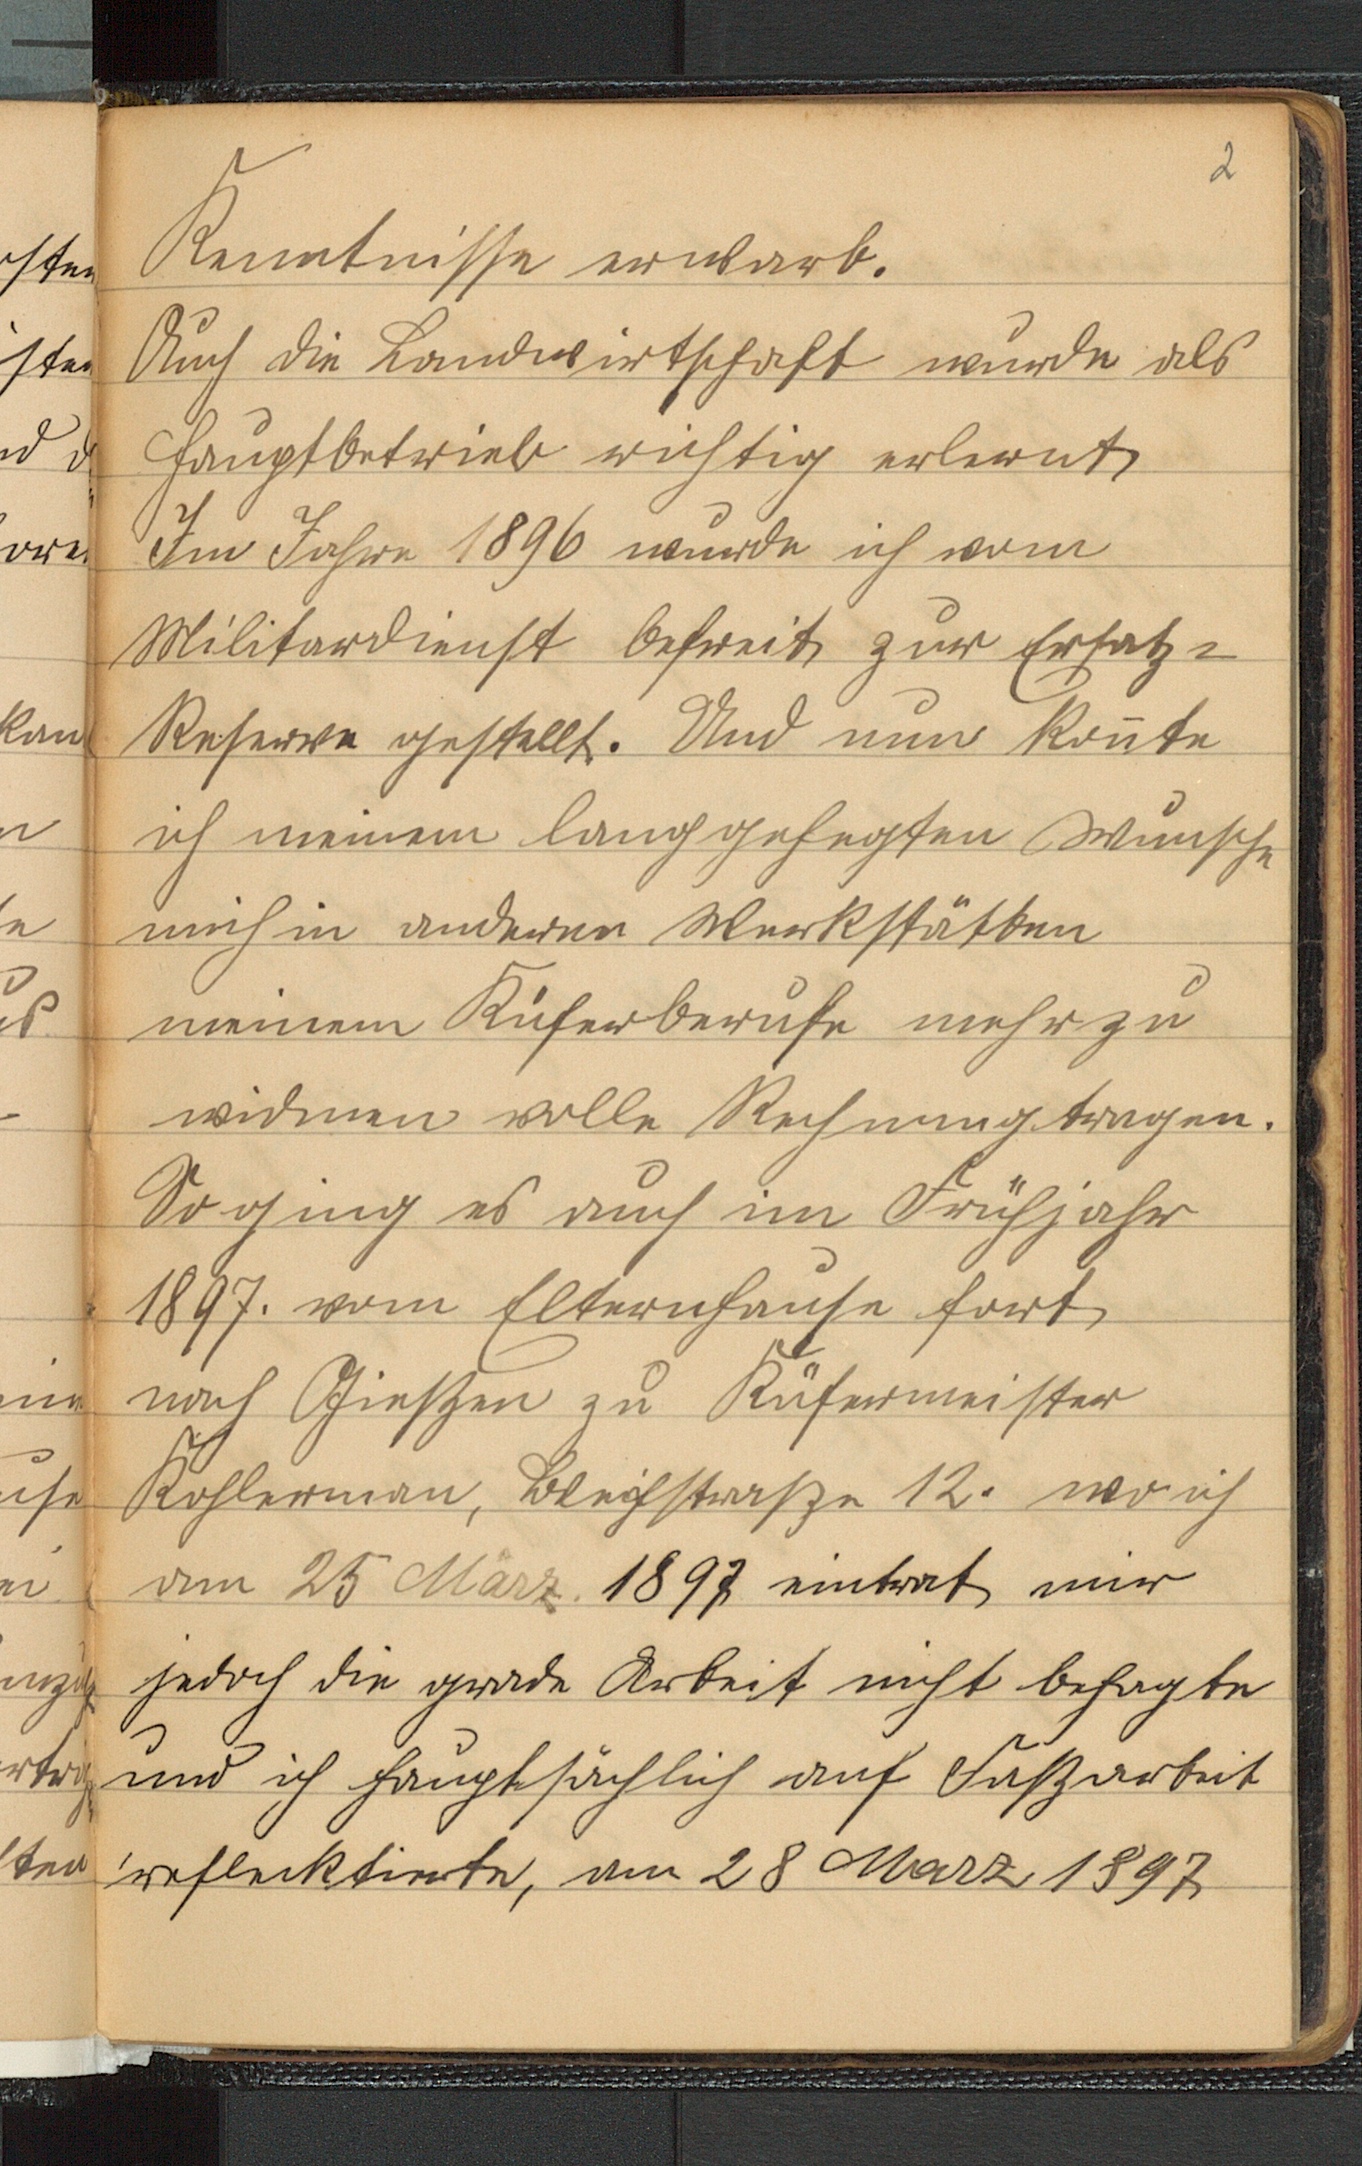 2
Kenntnisse erwarb.
Auch die Landwirtschaft wurde als
Hauptbetrieb richtig erlernt
Im Jahre 1896 wurde ich vom
Militardienst befreit zur Ersatz=
Reserve gestellt. Und nun kon̄te
ich meinem langgehegten Wunsche
mich in anderen Werkstätten
meinem Küferberufe mehr zu
widmen volle Rechnung tragen.
So ging es auch im Frühjahr
1897. vom Elternhause fort
nach Gießen zu Küfermeister
Kohlerman, Bleichstraße 12. wo ich
am 25 März. 1897 eintrat mir
jedoch die grade Arbeit nicht behagte
und ich hauptsächlich auf Faßarbeit
reflecktierte, am 28 Marz 1897